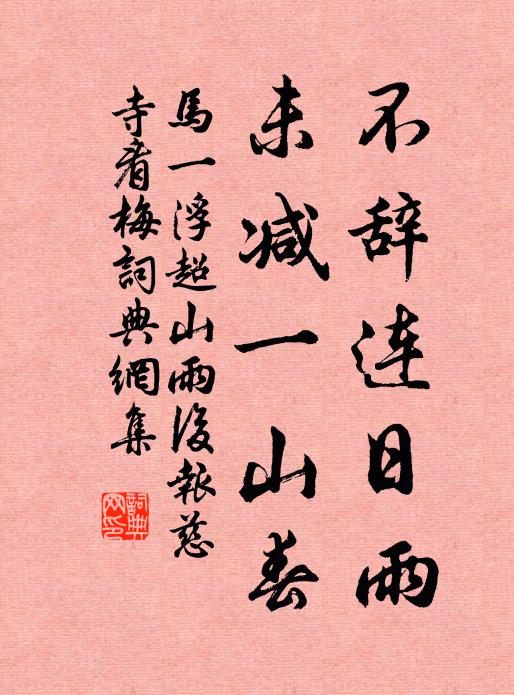 不辞连日雨
未减一山春
馬一浮超山雨後報慈
寺看梅詞典網集
詞典
网印